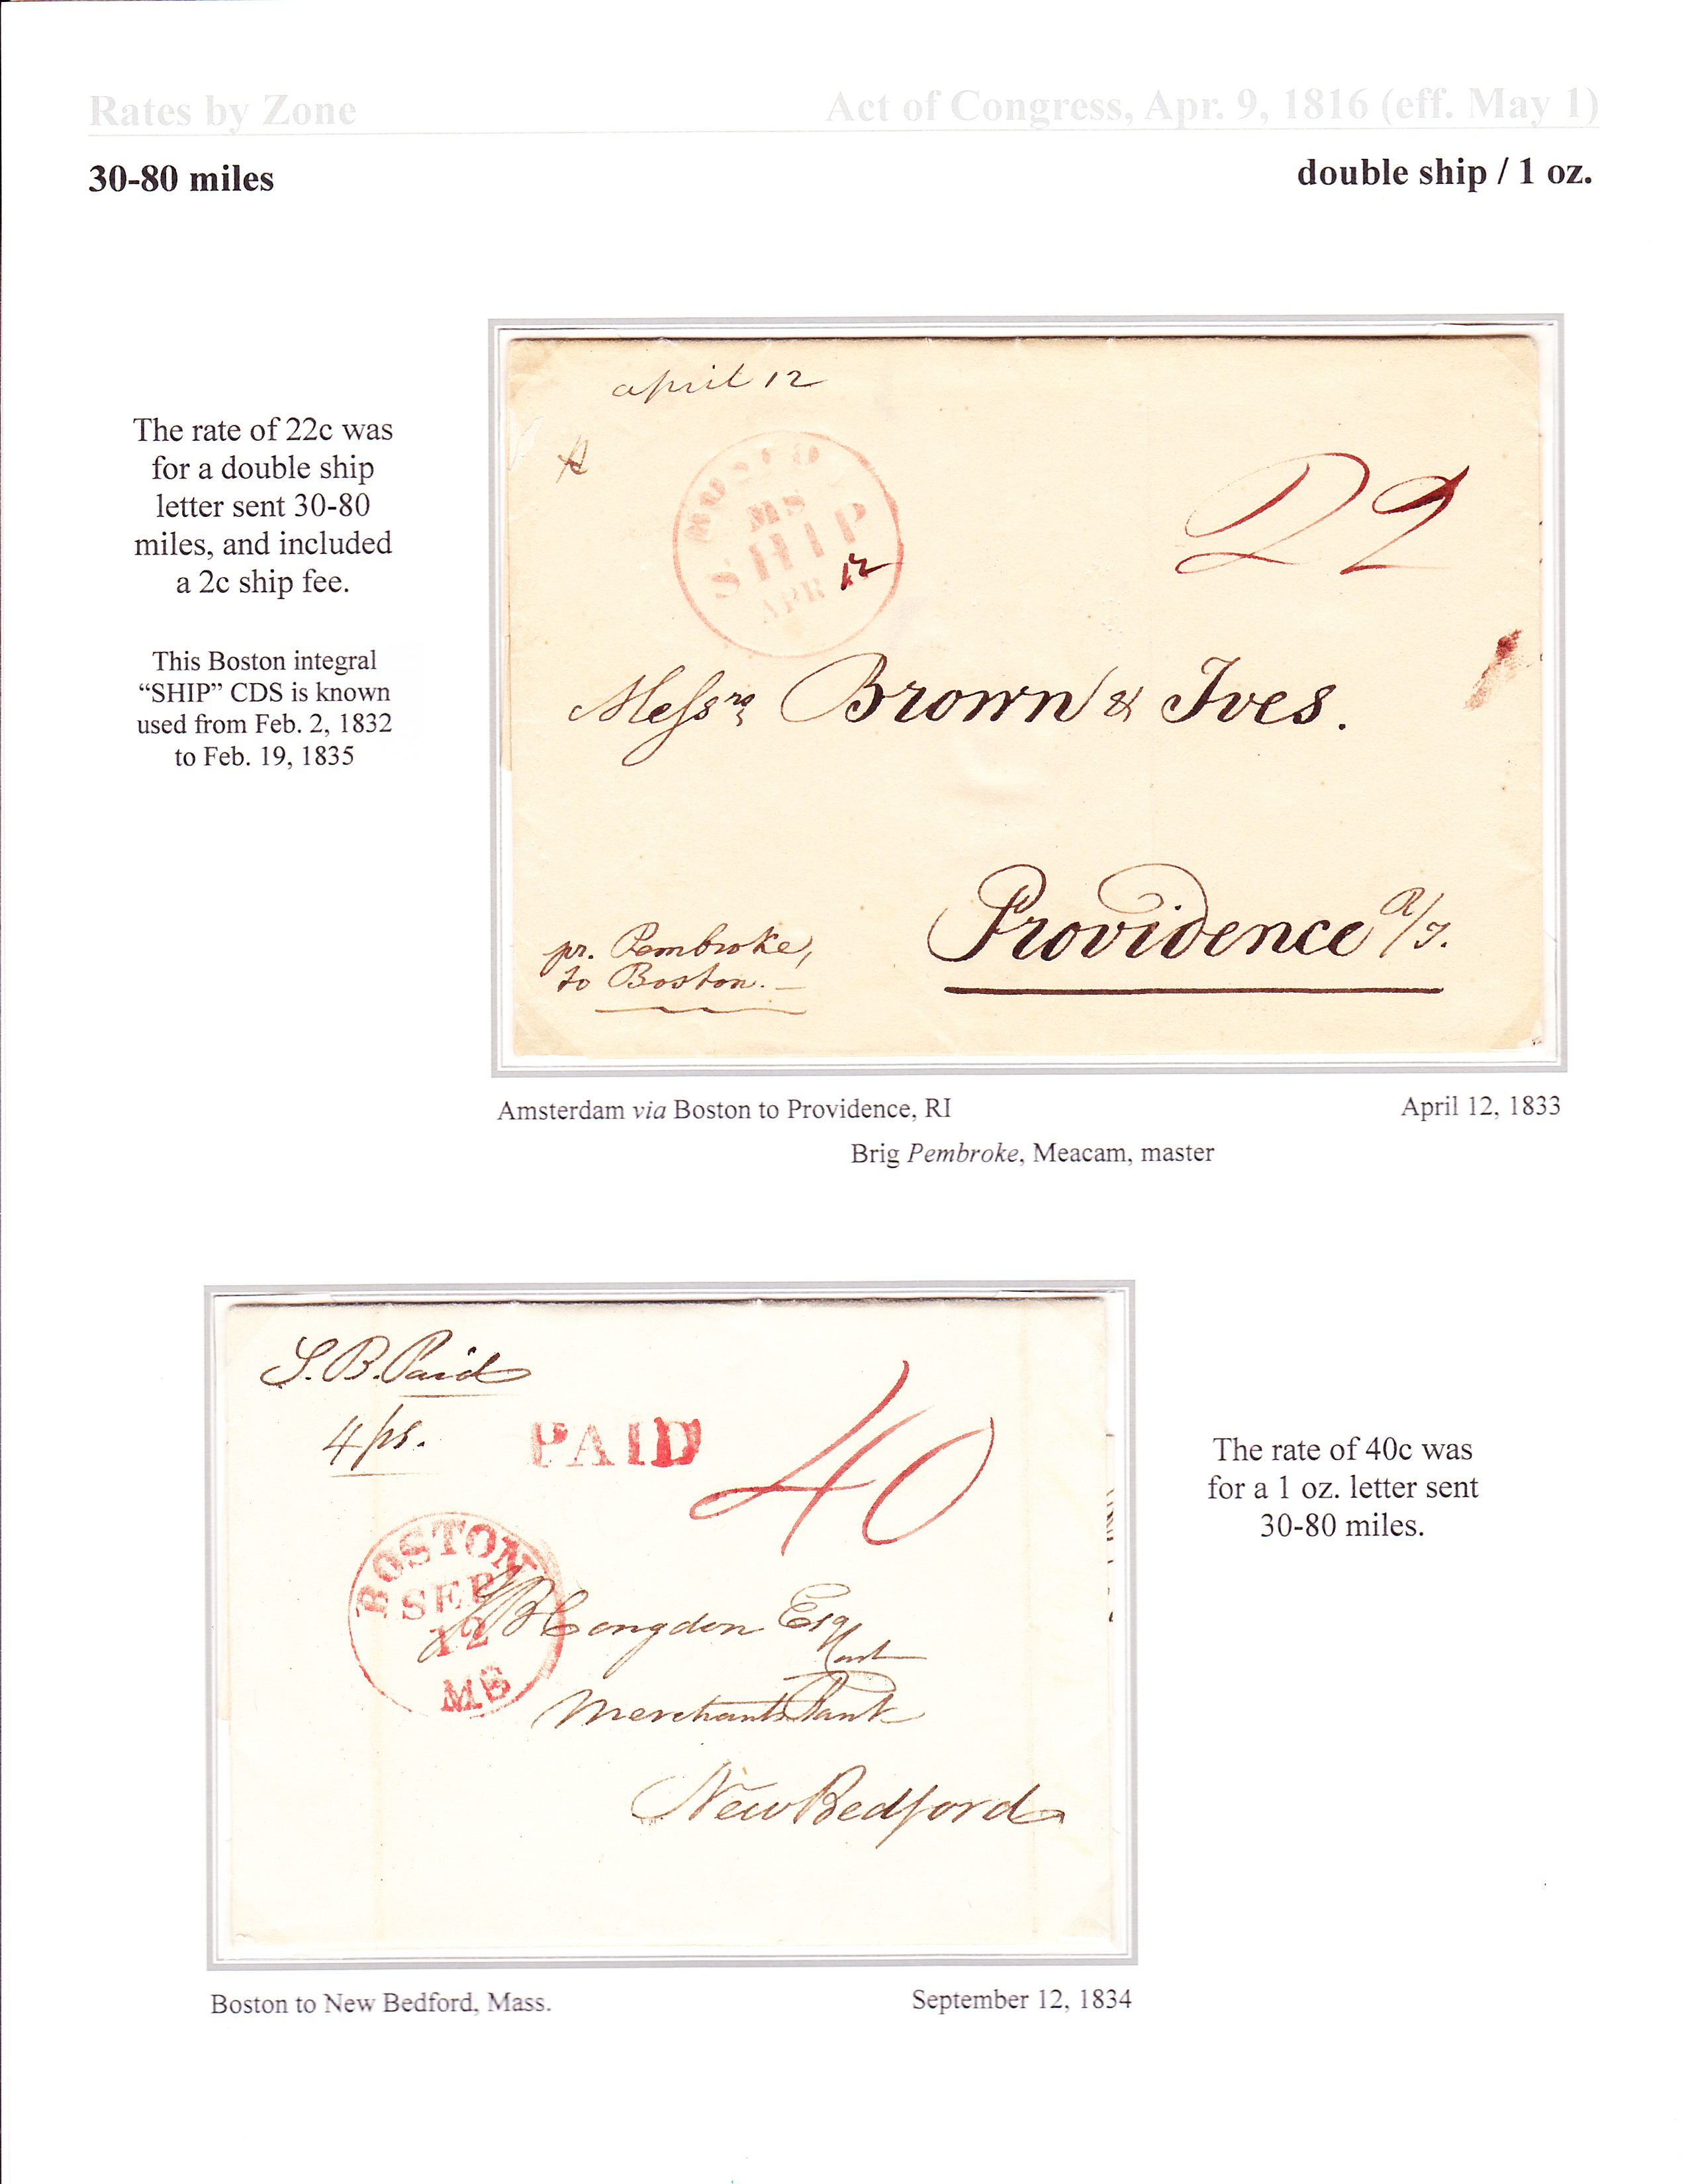 Rates by Zone
Act of Congress, Apr. 9, 1816 (eff. May 1)
30-80 miles
double ship / 1 oz.
The rate of 22c was
for a double ship
letter sent 30-80
miles, and included
a 2c ship fee.
This Boston integral
“SHIP” CDS is known
used from Feb. 2, 1832
to Feb. 19, 1835
april 12
BOSTON
MS
SHIP
APR 12
22
Messrs Brown & Ives.
Providence R/I.
pr. Pembroke,
to Boston.
Amsterdam via Boston to Providence, RI
April 12, 1833
Brig Pembroke, Meacam, master
S.B. Paid
4 ps.
PAID
40
BOSTON
SEP
12
MS
Congdon Esq
Cash
Merchants Bank
New Bedford
The rate of 40c was
for a 1 oz. letter sent
30-80 miles.
Boston to New Bedford, Mass.
September 12, 1834